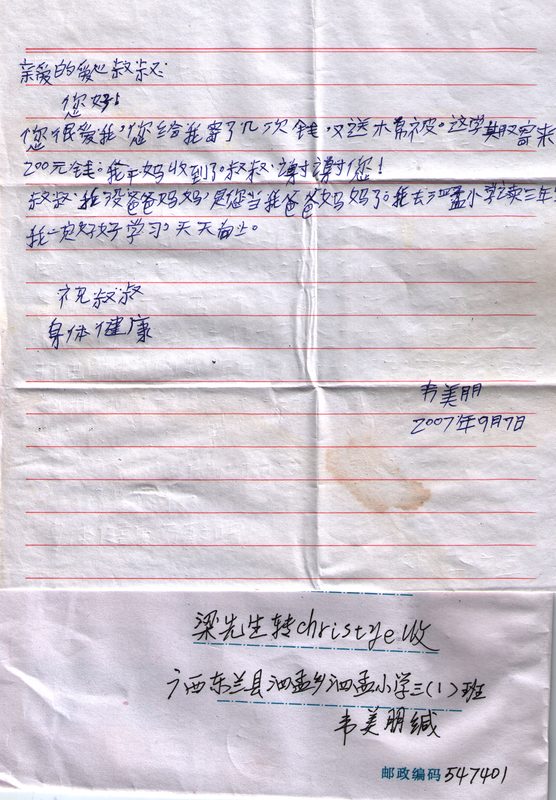 亲爱的爱心叔叔:
您好!
您很爱我,您给我寄了几次钱,又送棉被。这学期又寄来
200元钱,我干妈收到了。叔叔,谢谢您!
叔叔,我没爸爸妈妈,是您当我爸爸妈妈了。我去泗孟小学读三年,
我一定好好学习。天天向上。
祝叔叔
身体健康
韦美朋
2007年9月7日
梁先生转christye收
广西东兰县泗孟乡泗孟小学三(1)班
韦美朋缄
邮政编码 547401